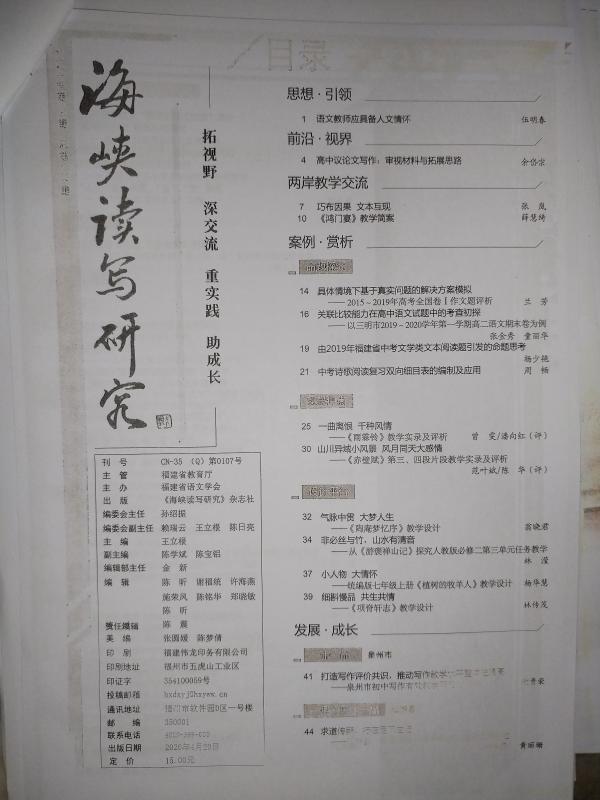 目录
海峡读写研究
拓视野 深交流 重实践 助成长
刊号 CN-35 (Q) 第0107号
主管 福建省教育厅
主办 福建省语文学会
出版 《海峡读写研究》杂志社
编委会主任 孙绍振
编委会副主任 赖瑞云 王立根 陈日亮
主编 王立根
副主编 陈学斌 陈宝铝
编辑部主任 金新
编辑 陈昕 谢福统 许海燕
施荣风 陈铭华 郑晓敏
陈昕
责任编辑 陈晨
美编 张圆媛 陈梦倩
印刷 福建伟龙印务有限公司
印刷地址 福州市五虎山工业区
印证字 354100059号
投稿邮箱 hxdxyj@hxyew.cn
通讯地址 福州市软件园D区一号楼
邮编 350001
联系电话
出版日期 2020年4月20日
定价 15.00元
思想·引领
1 语文教师应具备人文情怀 伍明春
前沿·视界
4 高中议论文写作：审视材料与拓展思路 余岱宗
两岸教学交流
7 巧布因果 文本互现 张岚
10 《鸿门宴》教学简案 薛慧绮
案例·赏析
14 具体情境下基于真实问题的解决方案模拟
——2015～2019年高考全国卷Ⅰ作文题评析 兰芳
16 关联比较能力在高中语文试题中的考查初探
——以三明市2019～2020学年第一学期高二语文期末卷为例
张金秀 童丽华
19 由2019年福建省中考文学类文本阅读题引发的命题思考
杨少艳
21 中考诗歌阅读复习双向细目表的编制及应用 周畅
25 一曲离恨 千种风情
——《雨霖铃》教学实录及评析 曾雯/潘向红（评）
30 山川异域小风景 风月同天大感情
——《赤壁赋》第三、四段片段教学实录及评析
范叶斌/陈华（评）
32 气脉中贯 大梦人生
——《陶庵梦忆序》教学设计 翁晓君
34 非必丝与竹，山水有清音
——从《游褒禅山记》探究人教版必修二第三单元任务教学
林滢
37 小人物 大情怀
——统编版七年级上册《植树的牧羊人》教学设计 杨华慧
39 细斟慢品 共生共情
——《项脊轩志》教学设计 林传茂
发展·成长
泉州市
41 打造写作评价共识，推动写作教学
——泉州市初中写作
44 求道
黄丽珊